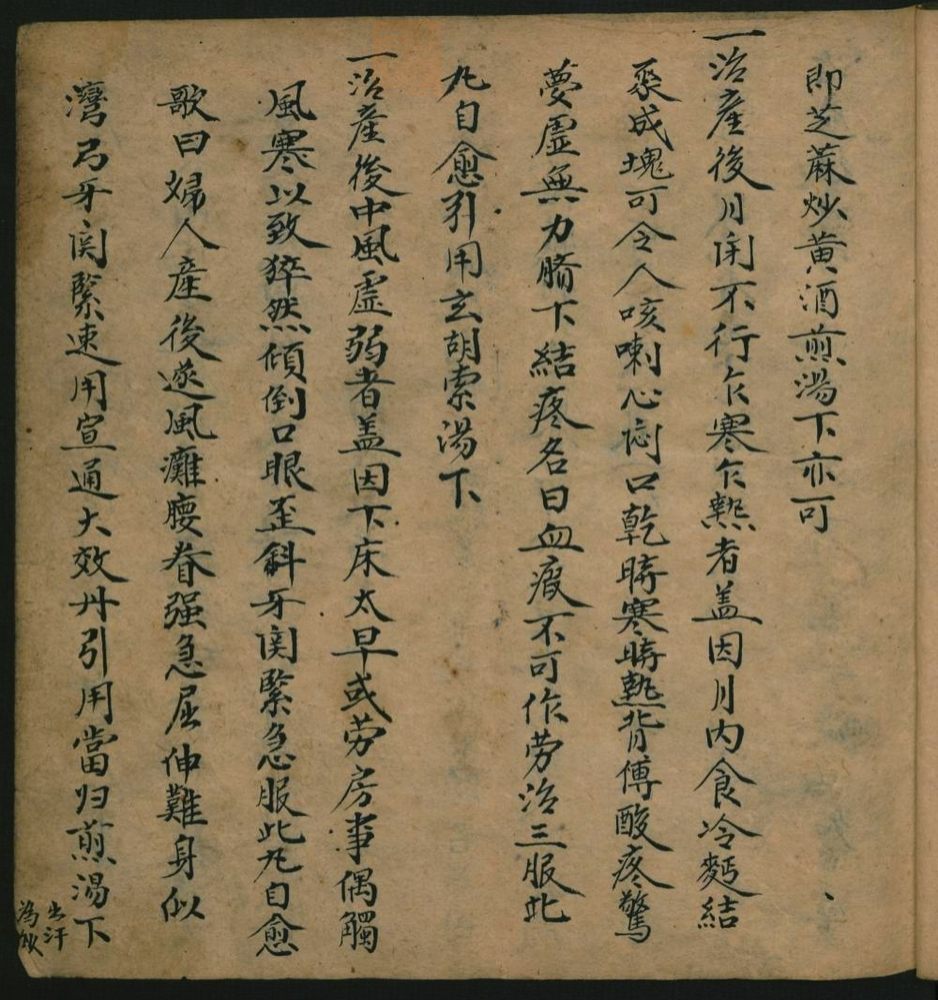 即芝蔴炒黄酒煎湯下亦可
一治產後月闭不行乍寒乍熱者盖因月内食冷麪結
聚成塊可令人咳喇心悶口乾時寒時熱背傅酸疼驚
夢虛無力臍下結疼名曰血瘕不可作劳治三服此
丸自愈引用玄胡索湯下
一治產後中風虛弱者盖因下床太早或劳房事偶觸
風寒以致猝然傾倒口眼歪斜牙関緊急服此丸自愈
歌曰婦人產後逐風灘腰眷强急屈伸難身似
灣弓牙関緊速用宣通大效丹引用當归煎湯下
出汗
為